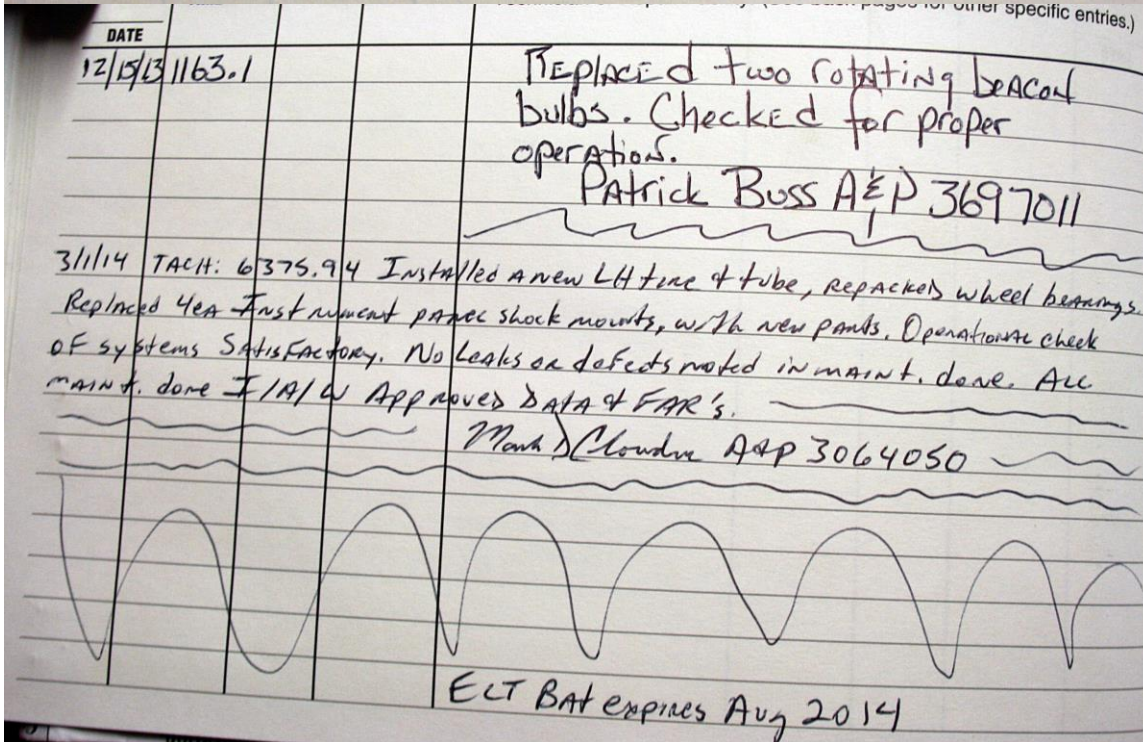 pages for other specific entries.)
DATE
12/15/13 1163.1 Replaced two rotating beacon
bulbs. Checked for proper
operation.
Patrick Buss A&P 3697011
3/1/14 TACH: 6375.94 Installed a new LH tire & tube, Repacked wheel bearings.
Replaced 4ea Instrument panel shock mounts, with new parts. Operational check
of systems Satisfactory. No Leaks or defects noted in maint. done. All
maint. done I/A/W Approved Data & FAR's.
Mark D A&P 3064050
ELT Bat expires Aug 2014